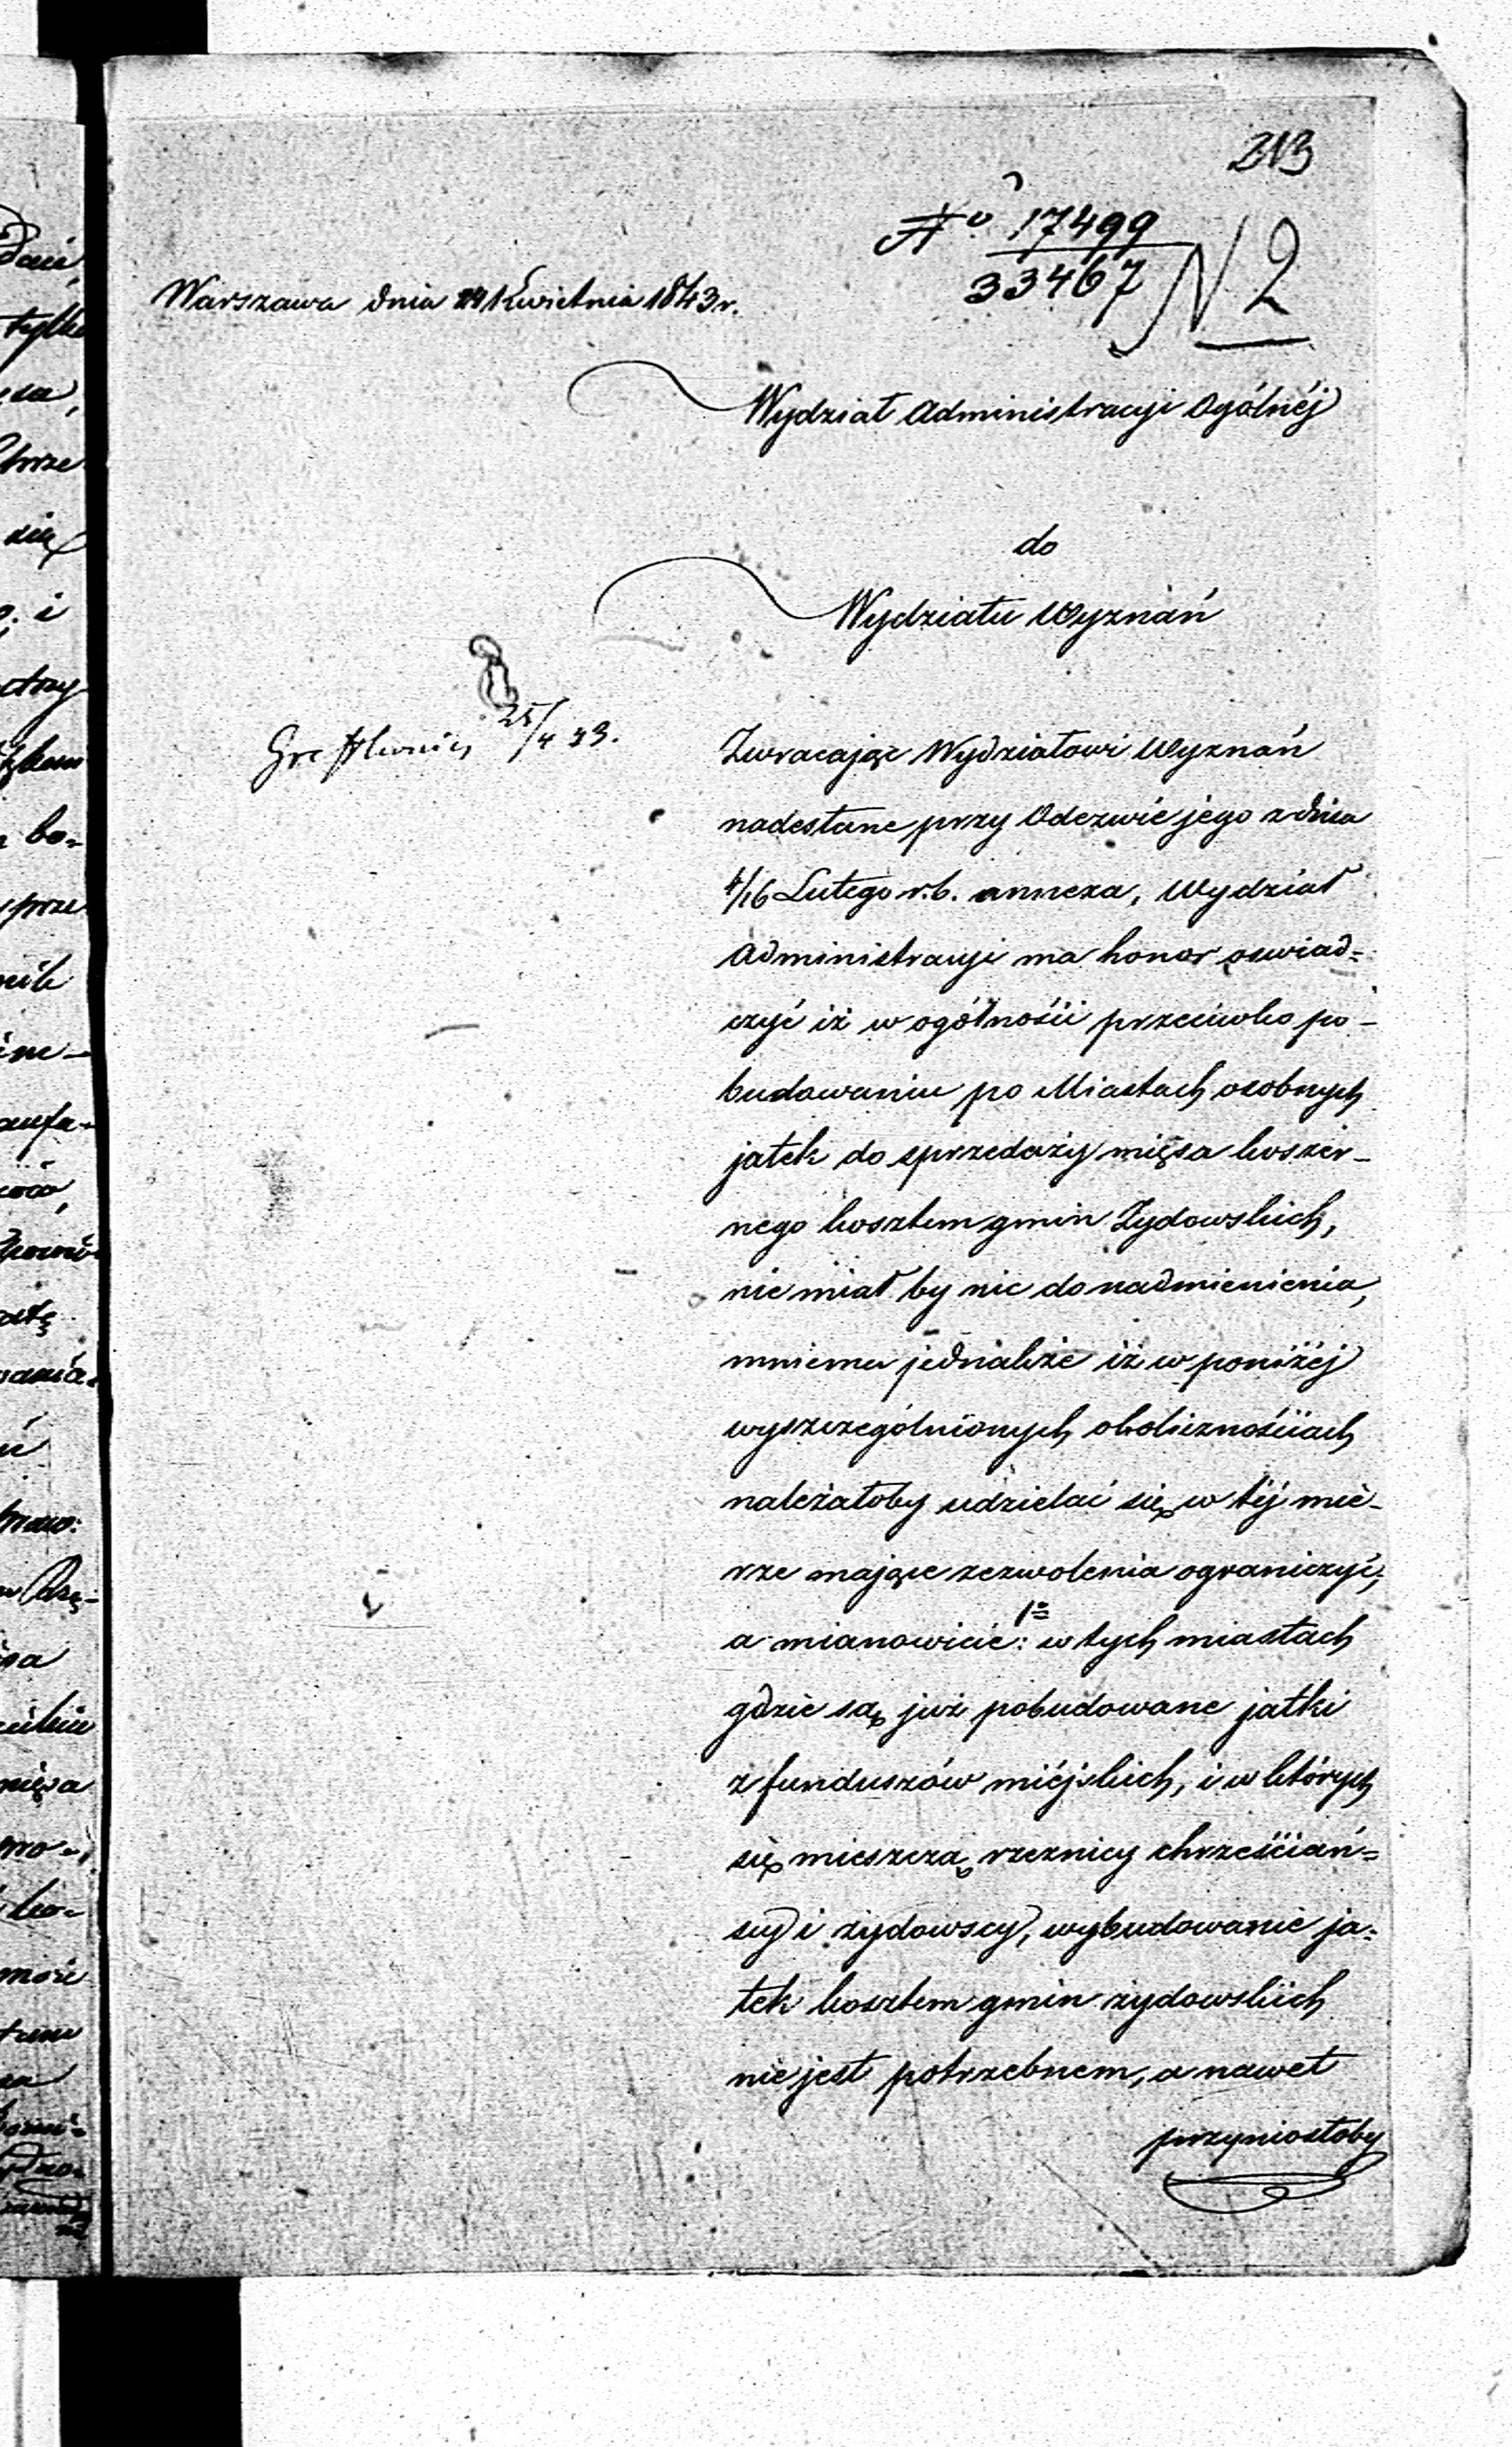 213
No 17499
33467 N 2
Warszawa dnia Kwietnia 1843 r.
Wydział Administracyi Ogólnéj
do
Wydziału Wyznań
25/4 43.
Zwracając Wydziałowi Wyznań
nadesłane przy Odezwie jego z dnia
4/16 Lutego r.b. annexa, Wydział
Administracyi ma honor oswiad=
czyć iż w ogólności przeciwko po-
budowaniu po Miastach osobnych
jatek do sprzedaży mięsa koszer-
nego kosztem gmin Żydowskich,
nie miał by nic do nadmienienia,
mniema jednakże iż w poniżéj
wyszczególnionych okolicznościach
należałoby udzielać się w téj mie-
rze mające zezwolenia ograniczyć,
a mianowicie: 1o w tych miastach
gdzie są już pobudowane jatki
z funduszów miéjskich, i w których
się mieszczą rzeznicy chrześciań=
scy i żydowscy, wybudowanie ja=
tek kosztem gmin żydowskich
nie jest potrzebnem, a nawet
przyniosłoby